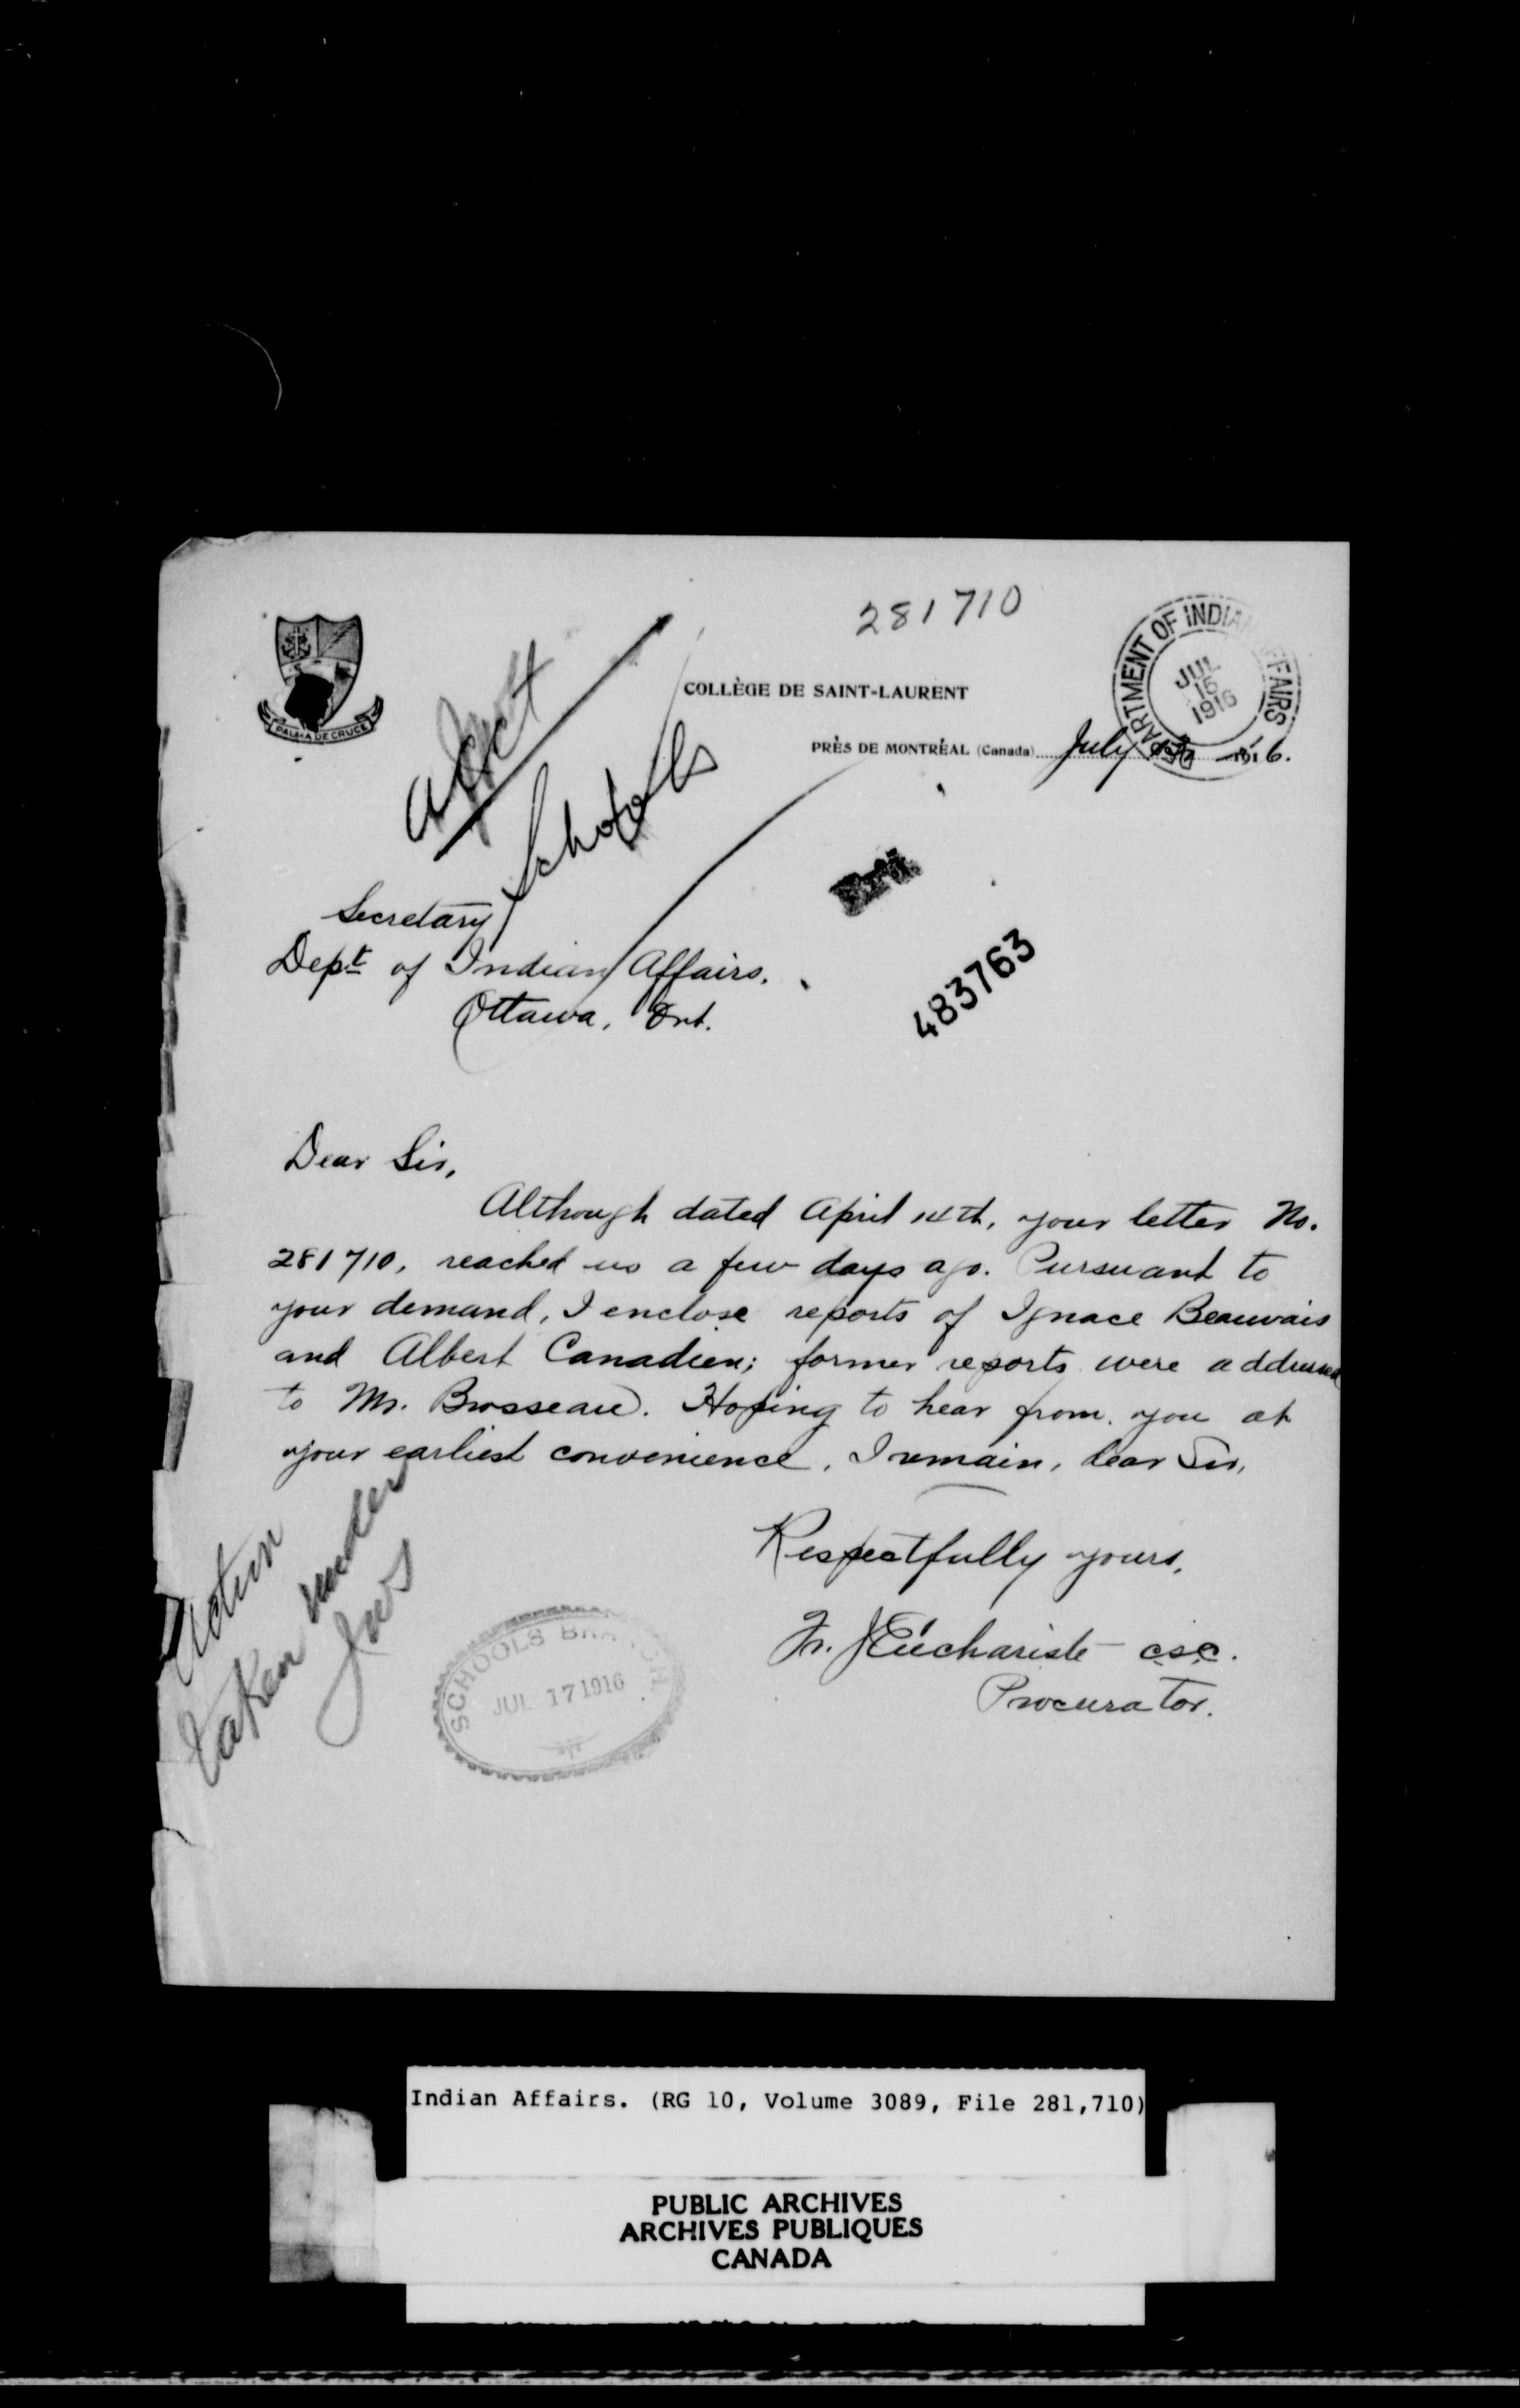 281710
PALMA DE CRUCE
COLLÈGE DE SAINT-LAURENT
DEPARTMENT OF INDIAN AFFAIRS
JUL
15
1916
PRÈS DE MONTRÉAL (Canada) July 1916.
Schools
Secretary
Dept of Indian Affairs.
Ottawa, Ont.
483763
Dear Sir,
Although dated April 14th, your letter No.
281710, reached us a few days ago. Pursuant to
your demand, I enclose reports of Ignace Beauvais
and Albert Canadien; former reports were addressed
to Mr. Brosseau. Hoping to hear from you at
your earliest convenience, I remain, dear Sir,
Respectfully yours,
Fr. J Euchariste c.s.c.
Procurator.
Action
taken under
SCHOOLS BRANCH
JUL 17 1916
Indian Affairs. (RG 10, Volume 3089, File 281,710)
PUBLIC ARCHIVES
ARCHIVES PUBLIQUES
CANADA